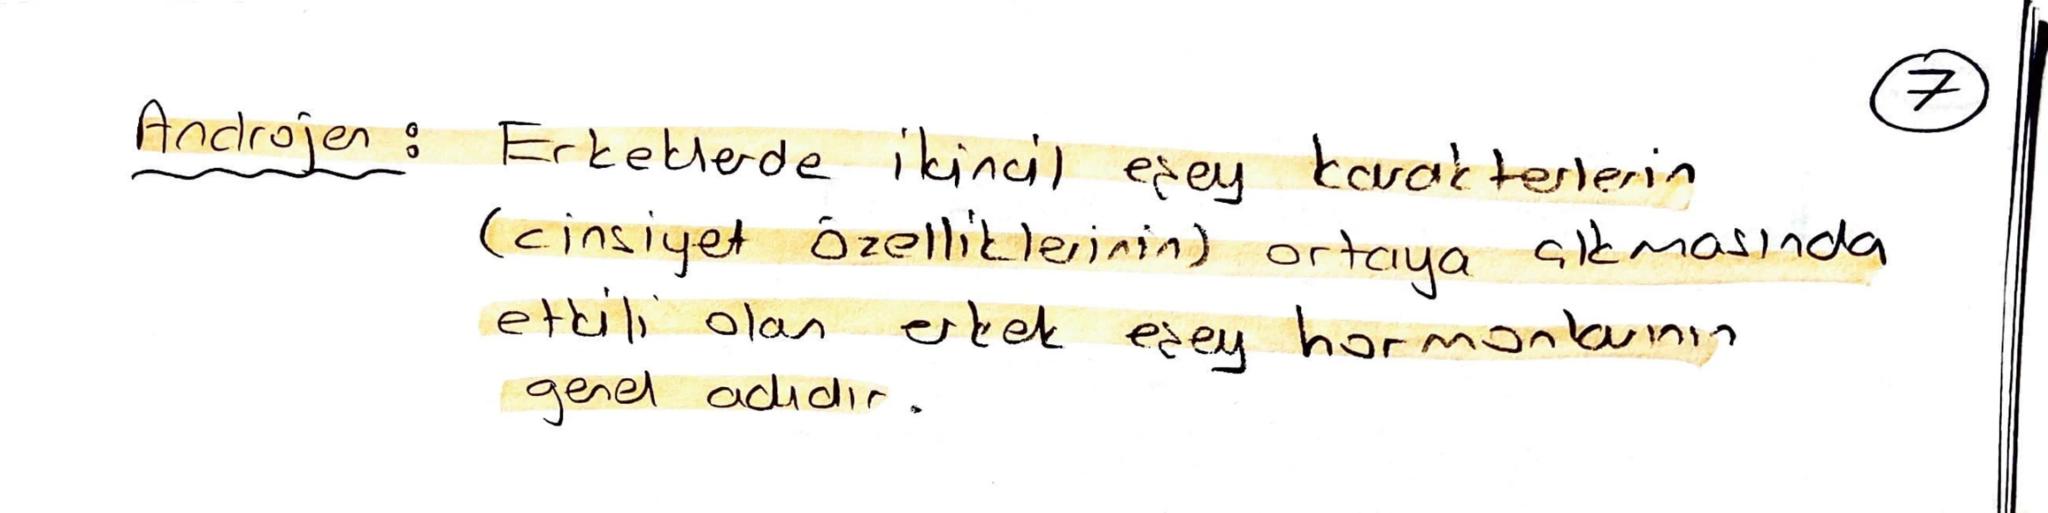 7
Androjen: Erkeklerde ikincil eşey karakterlerin
(cinsiyet özelliklerinin) ortaya çıkmasında
etkili olan erkek eşey hormonlarının
genel adıdır.